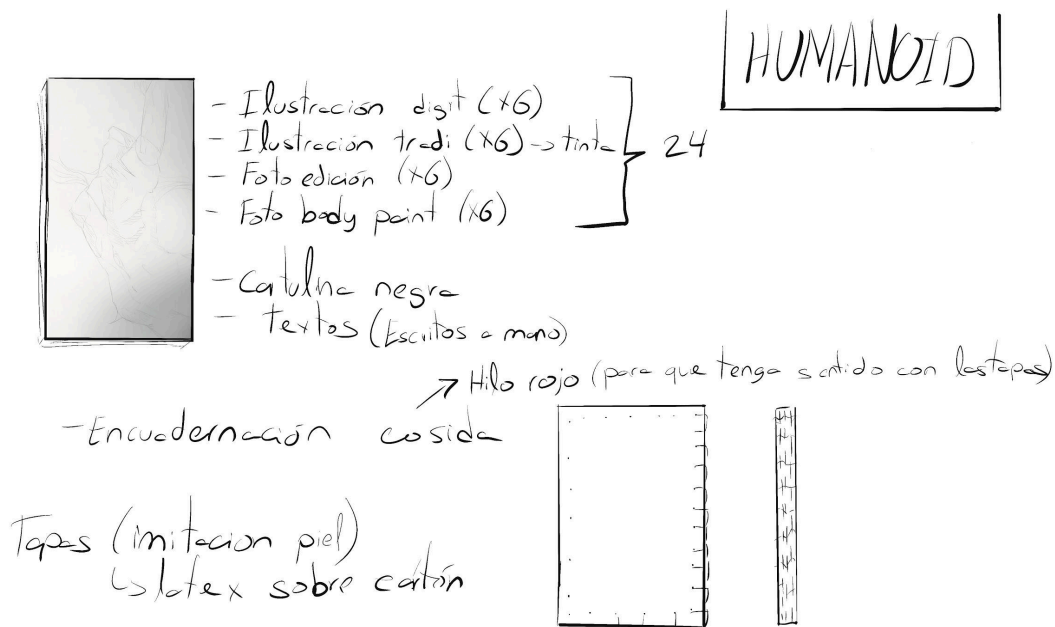 HUMANOID
- Ilustración digit (x6)
- Ilustración tradi (x6) -> tinta
- Foto edición (x6)
- Foto body paint (x6)
24
- Cartulina negra
- Textos (Escritos a mano)
Hilo rojo (para que tenga sentido con las tapas)
- Encuadernación cosida
Tapas (imitacion piel)
latex sobre cartón